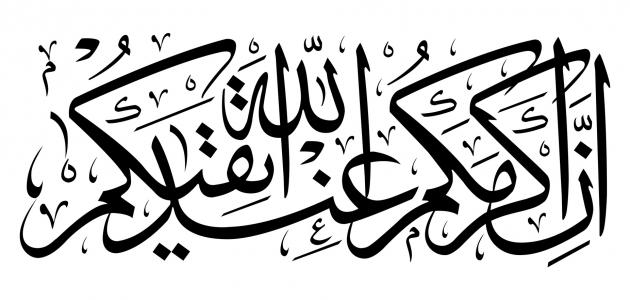 إِنَّ أَكْرَمَكُمْ عِنْدَ اللَّهِ أَتْقَىٰكُمْ